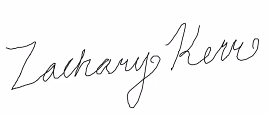 Zachary Kerr